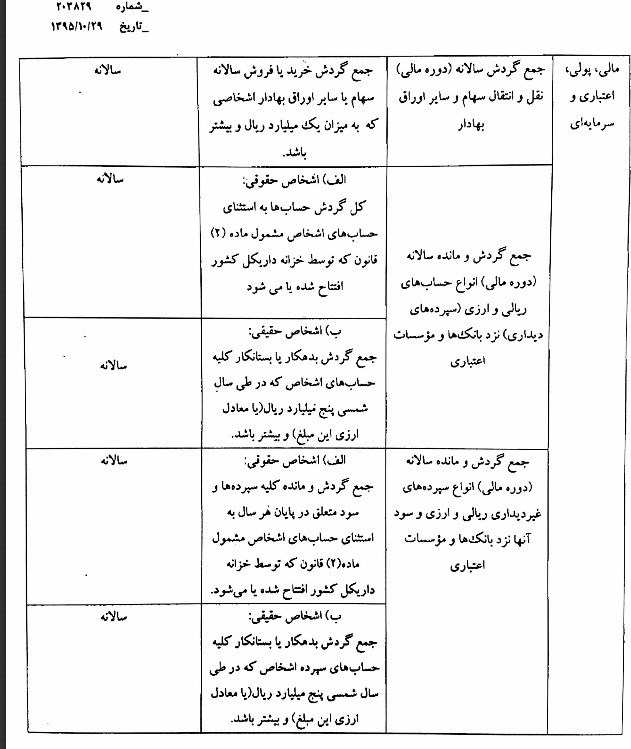 _شماره ۲۰۳۸۲۹
_تاریخ ۱۳۹۵/۱۰/۲۹
مالی، پولی،
اعتباری و
سرمایه‌ای
جمع گردش سالانه (دوره مالی)
نقل و انتقال سهام و سایر اوراق
بهادار
جمع گردش خرید یا فروش سالانه
سهام یا سایر اوراق بهادار اشخاصی
که به میزان یک میلیارد ریال و بیشتر
باشد.
سالانه
جمع گردش و مانده سالانه
(دوره مالی) انواع حساب‌های
ریالی و ارزی (سپرده‌های
دیداری) نزد بانک‌ها و مؤسسات
اعتباری
الف) اشخاص حقوقی:
کل گردش حساب‌ها به استثنای
حساب‌های اشخاص مشمول ماده (۲)
قانون که توسط خزانه داریکل کشور
افتتاح شده یا می شود
سالانه
ب) اشخاص حقیقی:
جمع گردش بدهکار یا بستانکار کلیه
حساب‌های اشخاص که در طی سال
شمسی پنج میلیارد ریال(یا معادل
ارزی این مبلغ) و بیشتر باشد.
سالانه
جمع گردش و مانده سالانه
(دوره مالی) انواع سپرده‌های
غیردیداری ریالی و ارزی و سود
آنها نزد بانک‌ها و مؤسسات
اعتباری
الف) اشخاص حقوقی:
جمع گردش و مانده کلیه سپرده‌ها و
سود متعلق در پایان هر سال به
استثنای حساب‌های اشخاص مشمول
ماده(۲) قانون که توسط خزانه
داریکل کشور افتتاح شده یا می‌شود.
سالانه
ب) اشخاص حقیقی:
جمع گردش بدهکار یا بستانکار کلیه
حساب‌های سپرده اشخاص که در طی
سال شمسی پنج میلیارد ریال(یا معادل
ارزی این مبلغ) و بیشتر باشد.
سالانه